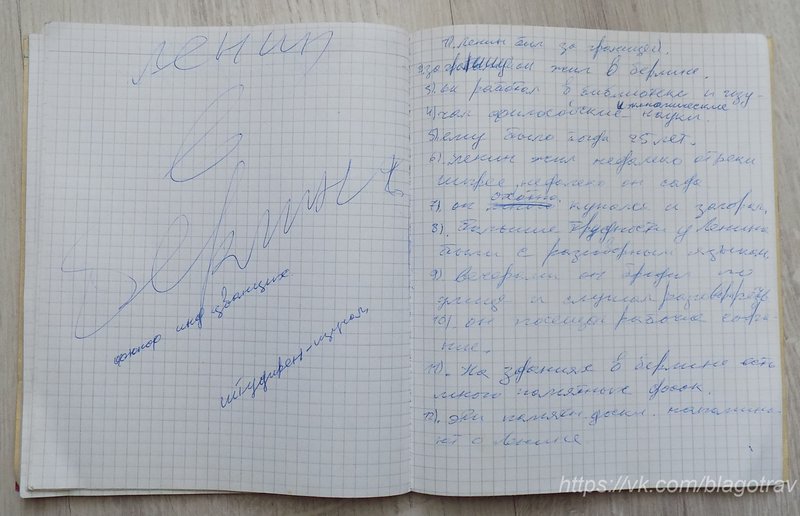 ленин
в
берлине
фюнф унд цванциг
штудирен-изучал
1). Ленин был за границей.
2) за границей он жил в берлине.
3) он работал в библиотеки и изу-
4) чал философские и экономические науки.
5) ему было тогда 25 лет.
6). Ленин жил недалеко от реки
шпрее, недалеко от сада
7). он охотно купался и загорал.
8). большие трудности у Ленина
были с разговорным языком
9) Вечерами он бродил по
улице и слушал разговор
10). он посещал рабочие собра-
ние.
11). На зданиях в берлине есть
много памятных досок.
12). Эти доски напомина-
ют о Ленине
https://vk.com/blagotrav